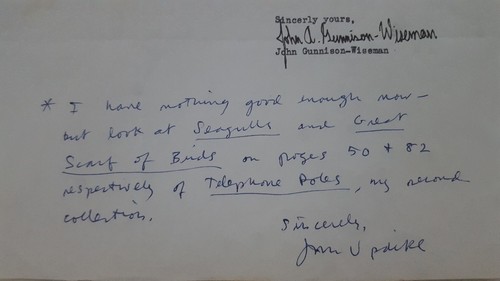 Sincerly yours,
John A. Gunnison-Wiseman
John Gunnison-Wiseman
* I have nothing good enough now—
but look at Seagulls and Great
Scarf of Birds on pages 50 + 82
respectively of Telephone Poles, my second
collection.
Sincerely,
John Updike